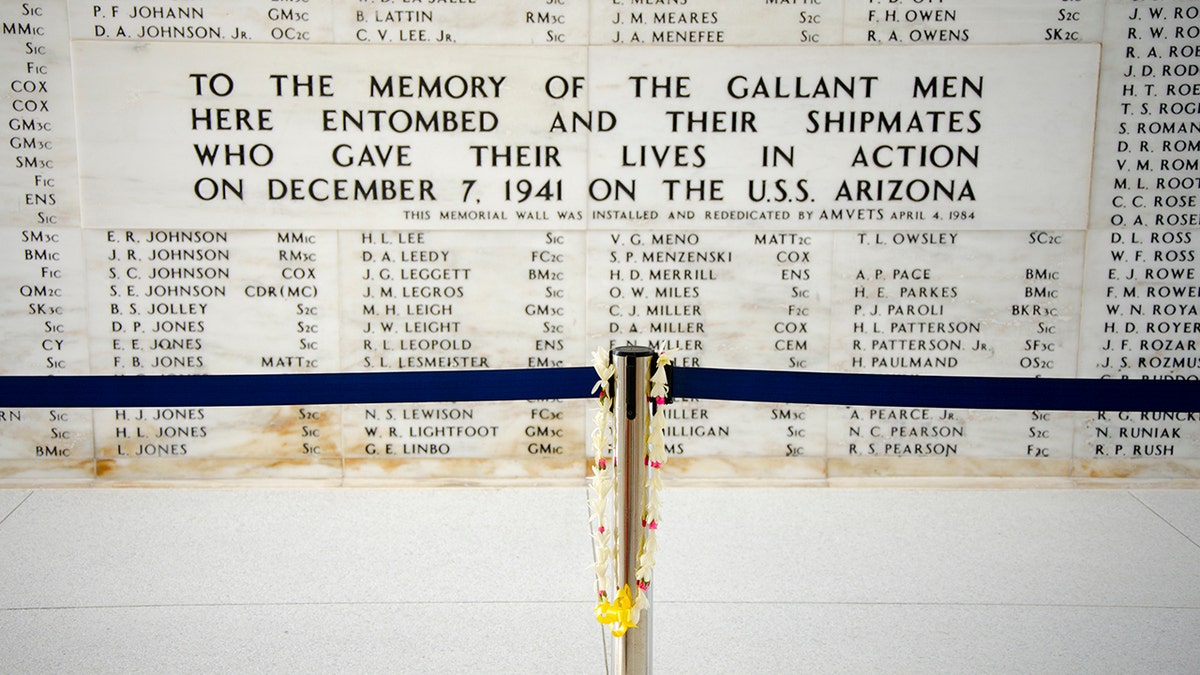 S1c
MM1c
S1c
F1c
COX
COX
GM3c
GM3c
SM3c
F1c
ENS
S1c
SM3c
BM1c
F1c
QM2c
SK3c
S1c
CY
S1c
S1c
S1c
BM1c
P. F. JOHANN GM3c
D. A. JOHNSON, JR. OC2c
B. LATTIN RM3c
C. V. LEE, JR. S1c
J. M. MEARES S2c
J. A. MENEFEE S1c
F. H. OWEN S2c
R. A. OWENS SK2c
TO THE MEMORY OF THE GALLANT MEN
HERE ENTOMBED AND THEIR SHIPMATES
WHO GAVE THEIR LIVES IN ACTION
ON DECEMBER 7, 1941 ON THE U.S.S. ARIZONA
THIS MEMORIAL WALL WAS INSTALLED AND REDEDICATED BY AMVETS APRIL 4, 1984
E. R. JOHNSON MM1c
J. R. JOHNSON RM3c
S. C. JOHNSON COX
S. E. JOHNSON CDR(MC)
B. S. JOLLEY S2c
D. P. JONES S2c
E. E. JONES S1c
F. B. JONES MATT2c
H. J. JONES S2c
H. L. JONES S1c
L. JONES S1c
H. L. LEE S1c
D. A. LEEDY FC2c
J. G. LEGGETT BM2c
J. M. LEGROS S1c
M. H. LEIGH GM3c
J. W. LEIGHT S2c
R. L. LEOPOLD ENS
S. L. LESMEISTER EM3c
N. S. LEWISON FC3c
W. R. LIGHTFOOT GM3c
G. E. LINBO GM1c
V. G. MENO MATT2c
S. P. MENZENSKI COX
H. D. MERRILL ENS
O. W. MILES S1c
C. J. MILLER F2c
D. A. MILLER COX
MILLER CEM
S1c
SM3c
S1c
S1c
T. L. OWSLEY SC2c
A. P. PACE BM1c
H. E. PARKES BM1c
P. J. PAROLI BKR3c
H. L. PATTERSON S1c
R. PATTERSON, JR. SF3c
H. PAULMAND OS2c
A. PEARCE, JR. S1c
N. C. PEARSON S2c
R. S. PEARSON F2c
J. W. RO
R. W. RO
R. A. ROE
J. D. ROD
H. T. ROE
T. S. ROG
S. ROMAN
D. R. ROM
V. M. ROM
M. L. ROOT
C. C. ROSE
O. A. ROSE
D. L. ROSS
W. F. ROSS
E. J. ROWE
F. M. ROWE
W. N. ROYA
H. D. ROYER
J. F. ROZAR
J. S. ROZMU
R. G. RUNCK
N. RUNIAK
R. P. RUSH